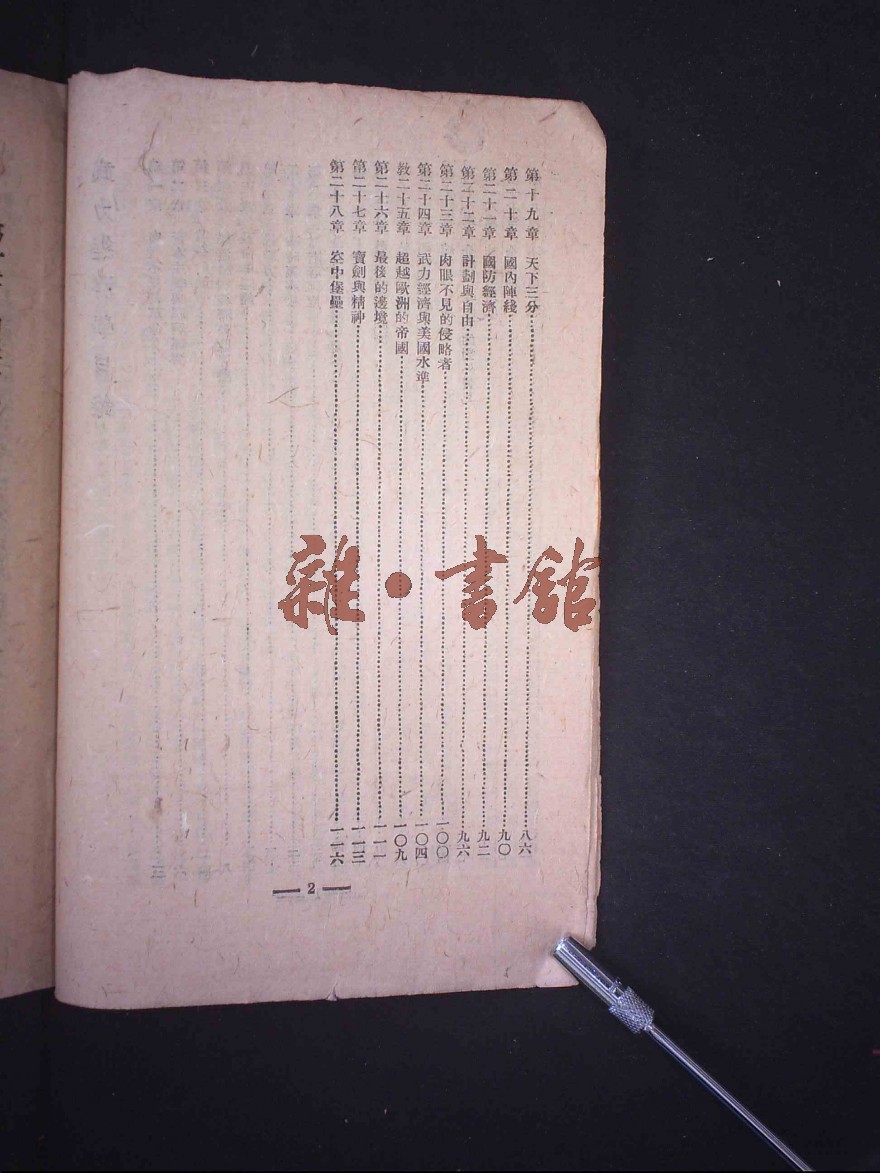 第十九章 天下三分……八六
第二十章 國內陣綫……九〇
第二十一章 國防經濟……九二
第二十二章 計劃與自由……九六
第二十三章 肉眼不見的侵略者……一〇〇
第二十四章 武力經濟與美國水準……一〇四
敎二十五章 超越歐洲的帝國……一〇九
第二十六章 最後的邊境……一一一
第二十七章 寶劍與精神……一一三
第二十八章 空中堡壘……一一六
2
雜·書館